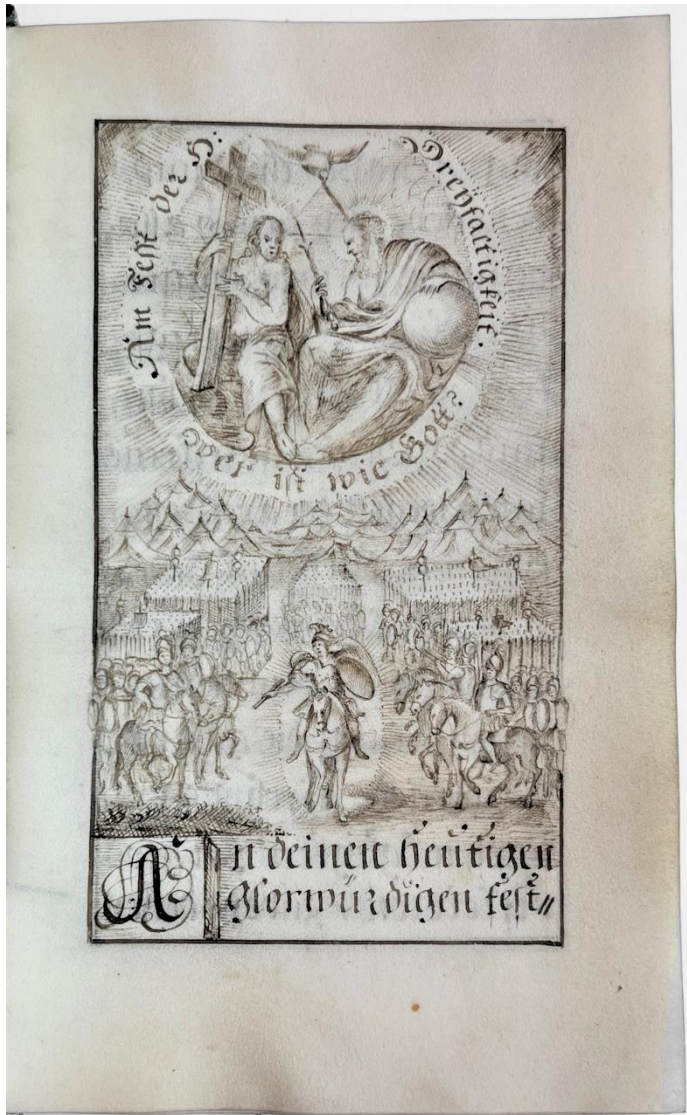 Am Fest der H: Dreyfaltigkeit.
Wer ist wie Gott?
An deinen heutigen
Glorwürdigen fest〃